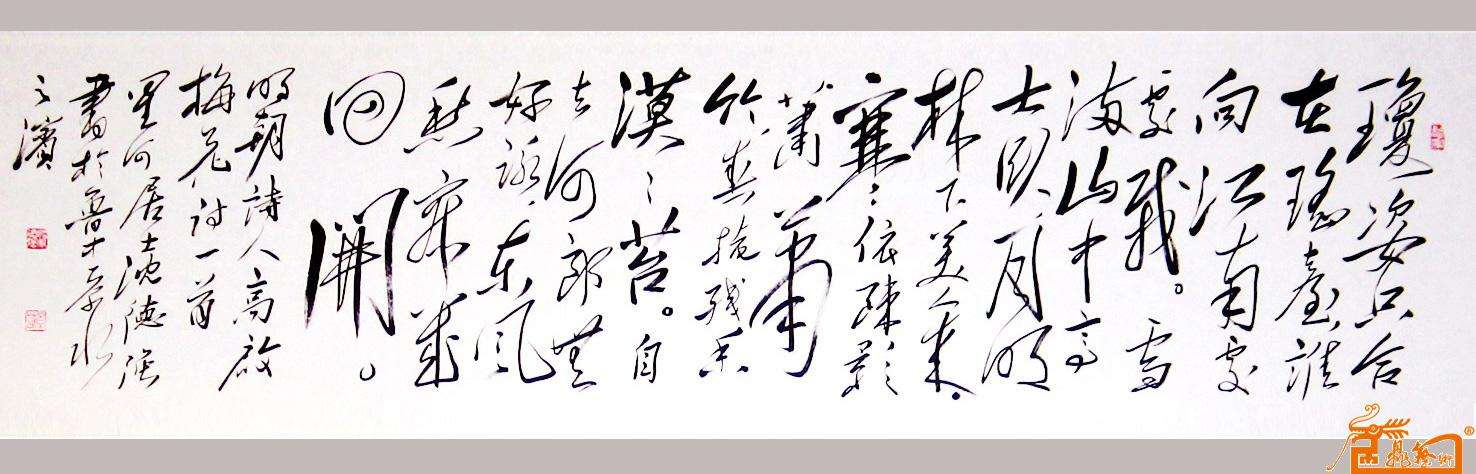 瓊姿只合
在瑤臺,誰
向江南處
處栽。雪
滿山中高
士臥,月明
林下美人來。
寒:依疎影
蕭蕭
竹,春掩殘香
漠:苔。自
去何郎無
好詠,東風
愁寂幾
回開。
明朝詩人高啟
梅花詩一首
星河居士沈德強
書於魯中孝水
之濱